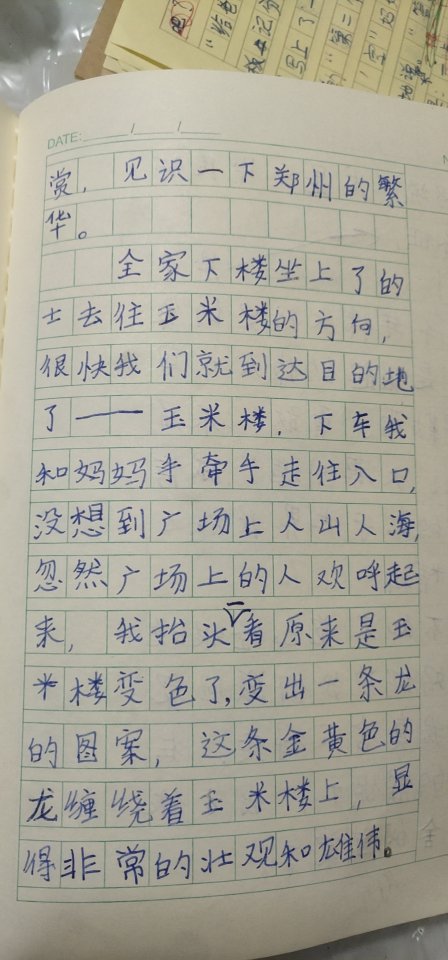 DATE: / /
赏，见识一下郑州的繁
华。
全家下楼坐上了的
士去往玉米楼的方向，
很快我们就到达目的地
了——玉米楼，下车我
和妈妈手牵手走往入口，
没想到广场上人山人海，
忽然广场上的人欢呼起
来，我抬头一看原来是玉
米楼变色了，变出一条龙
的图案，这条金黄色的
龙缠绕着玉米楼上，显
得非常的壮观和雄伟。